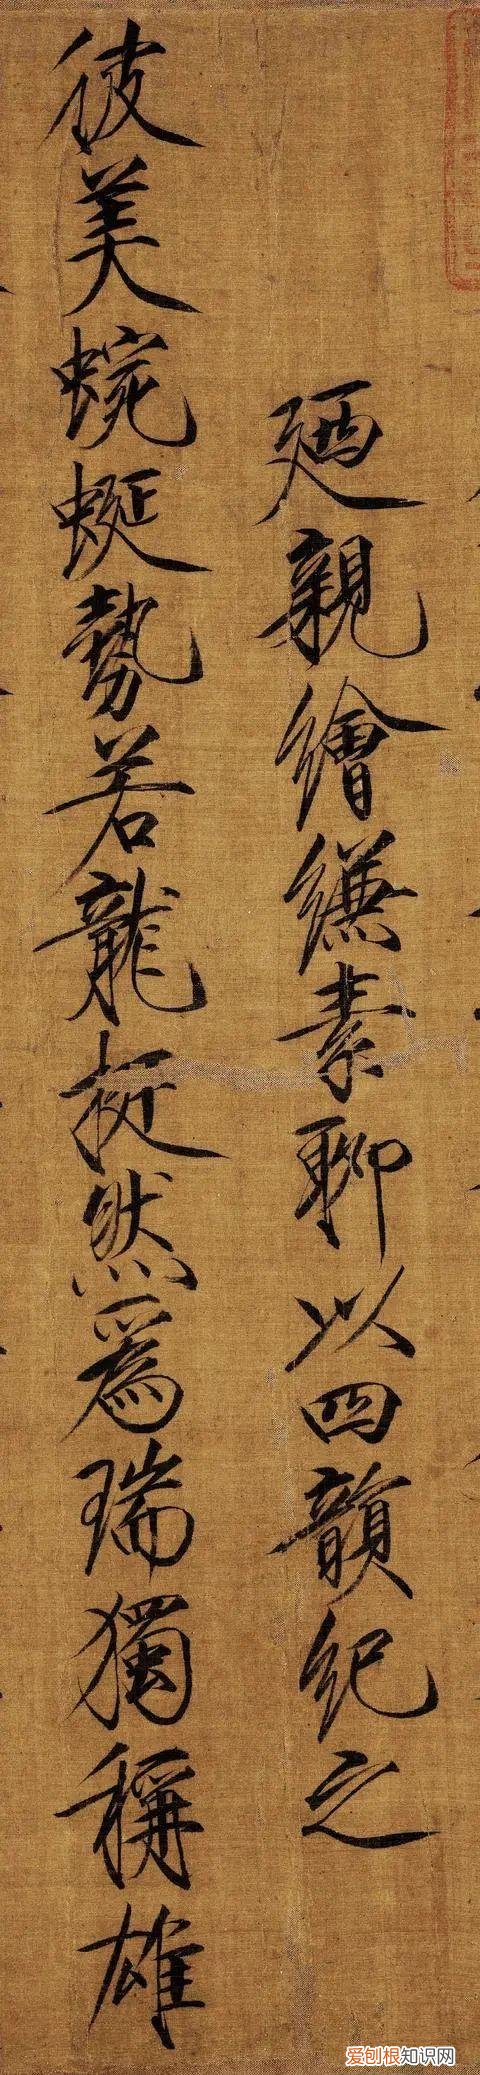 廼親繪縑素聊以四韻紀之
彼美蜿蜒勢若龍挺然爲瑞獨稱雄
爱刨根知识网